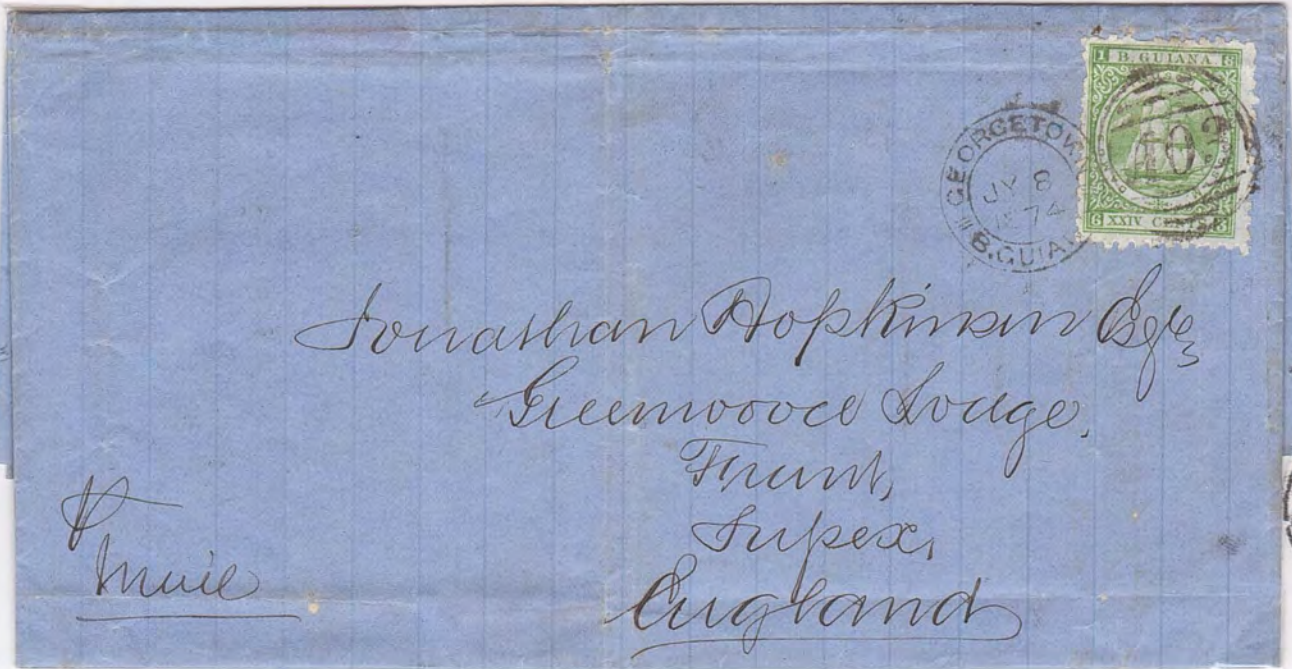 B. GUIANA
1 8
6 3
XXIV CENTS
A03
GEORGETOWN
JY 8
1874
B.GUIA
Jonathan Hopkinson Esqre
Greenwood Lodge,
Frant,
Sussex,
England
pr
Mail